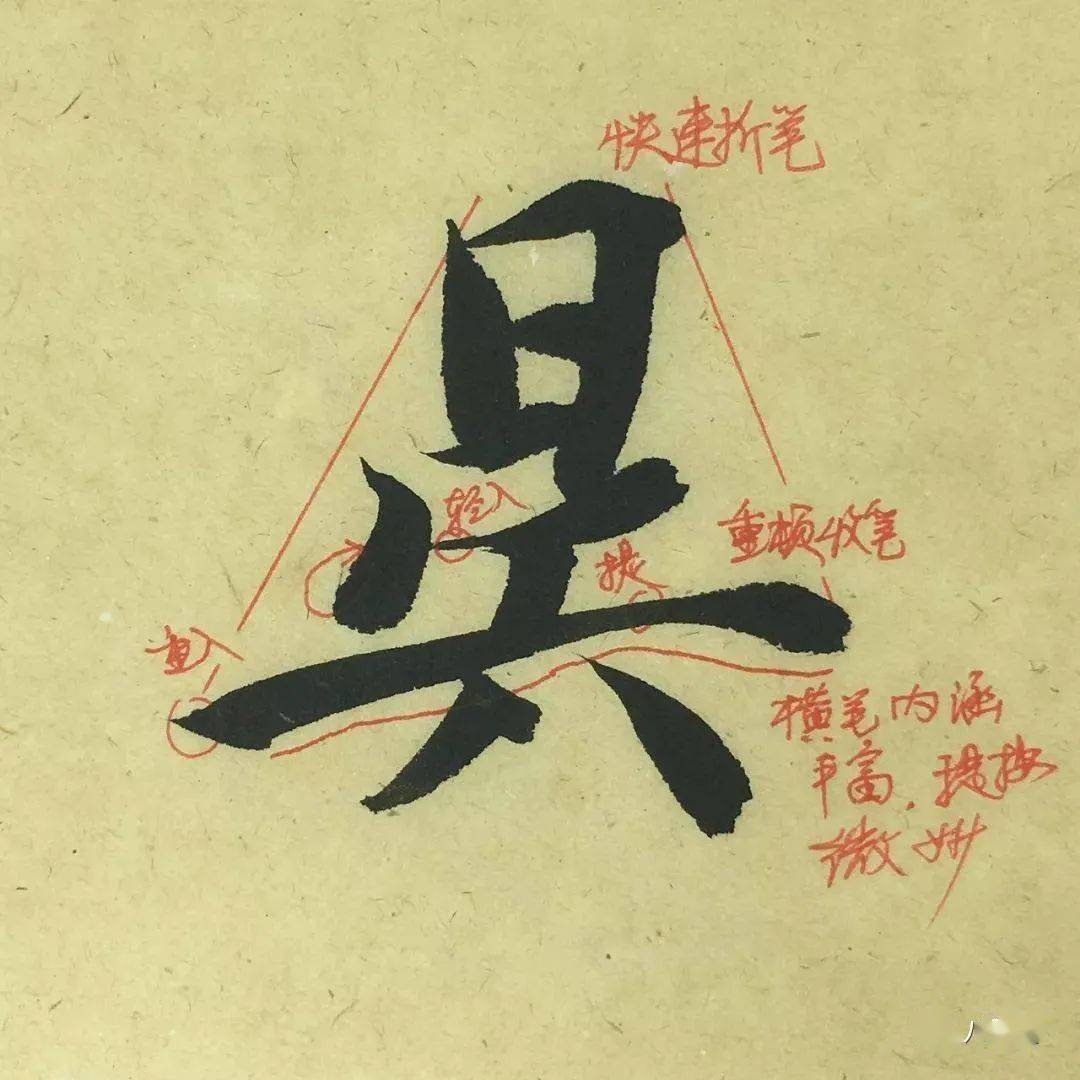 快速折笔
轻入
重顿收笔
提
直入
横笔内涵
丰富，提按
微妙